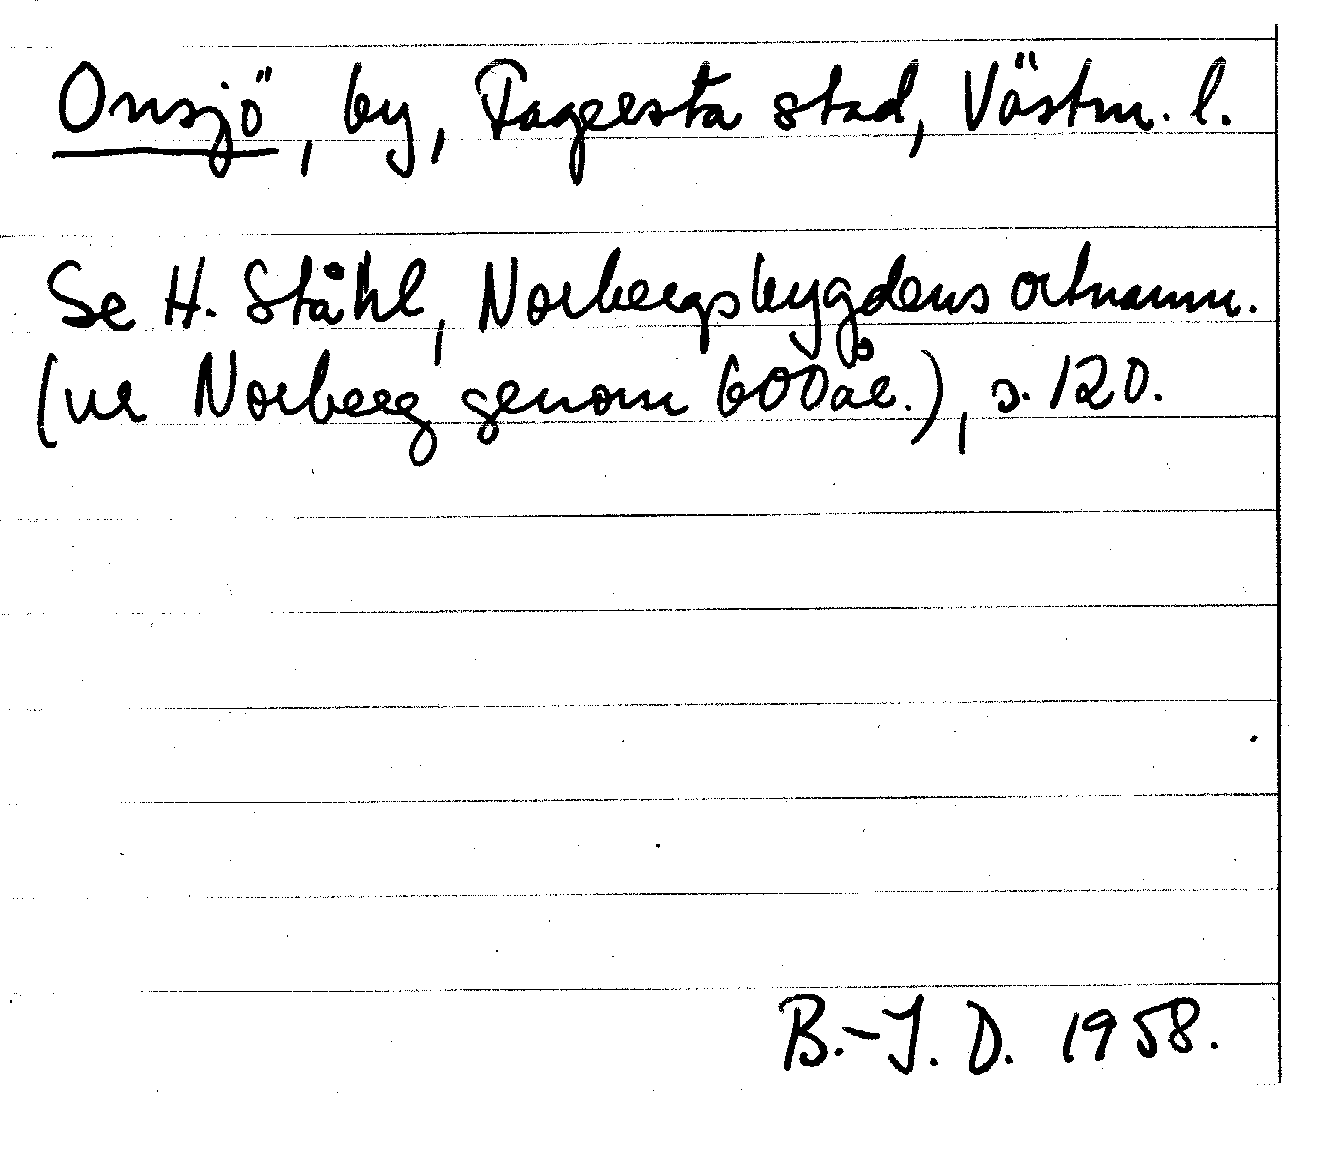 Onsjö, by, Fagersta stad, Västm. l.
Se H. Ståhl, Norbergsbygdens ortnamn.
(ur Norberg genom 600 år.), s. 120.
B.-J. D. 1958.